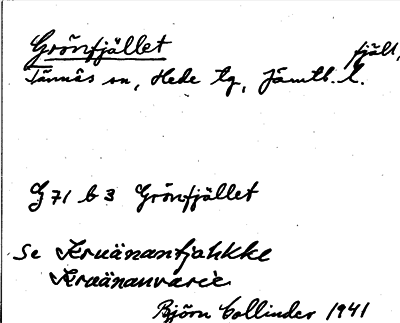 Grönfjället fjäll,
Tännäs sn, Hede tg, Jämtl. l.
G 71 b 3 Grönfjället
Se Kruänantjahkke
Kruänanvarèe
Björn Collinder 1941